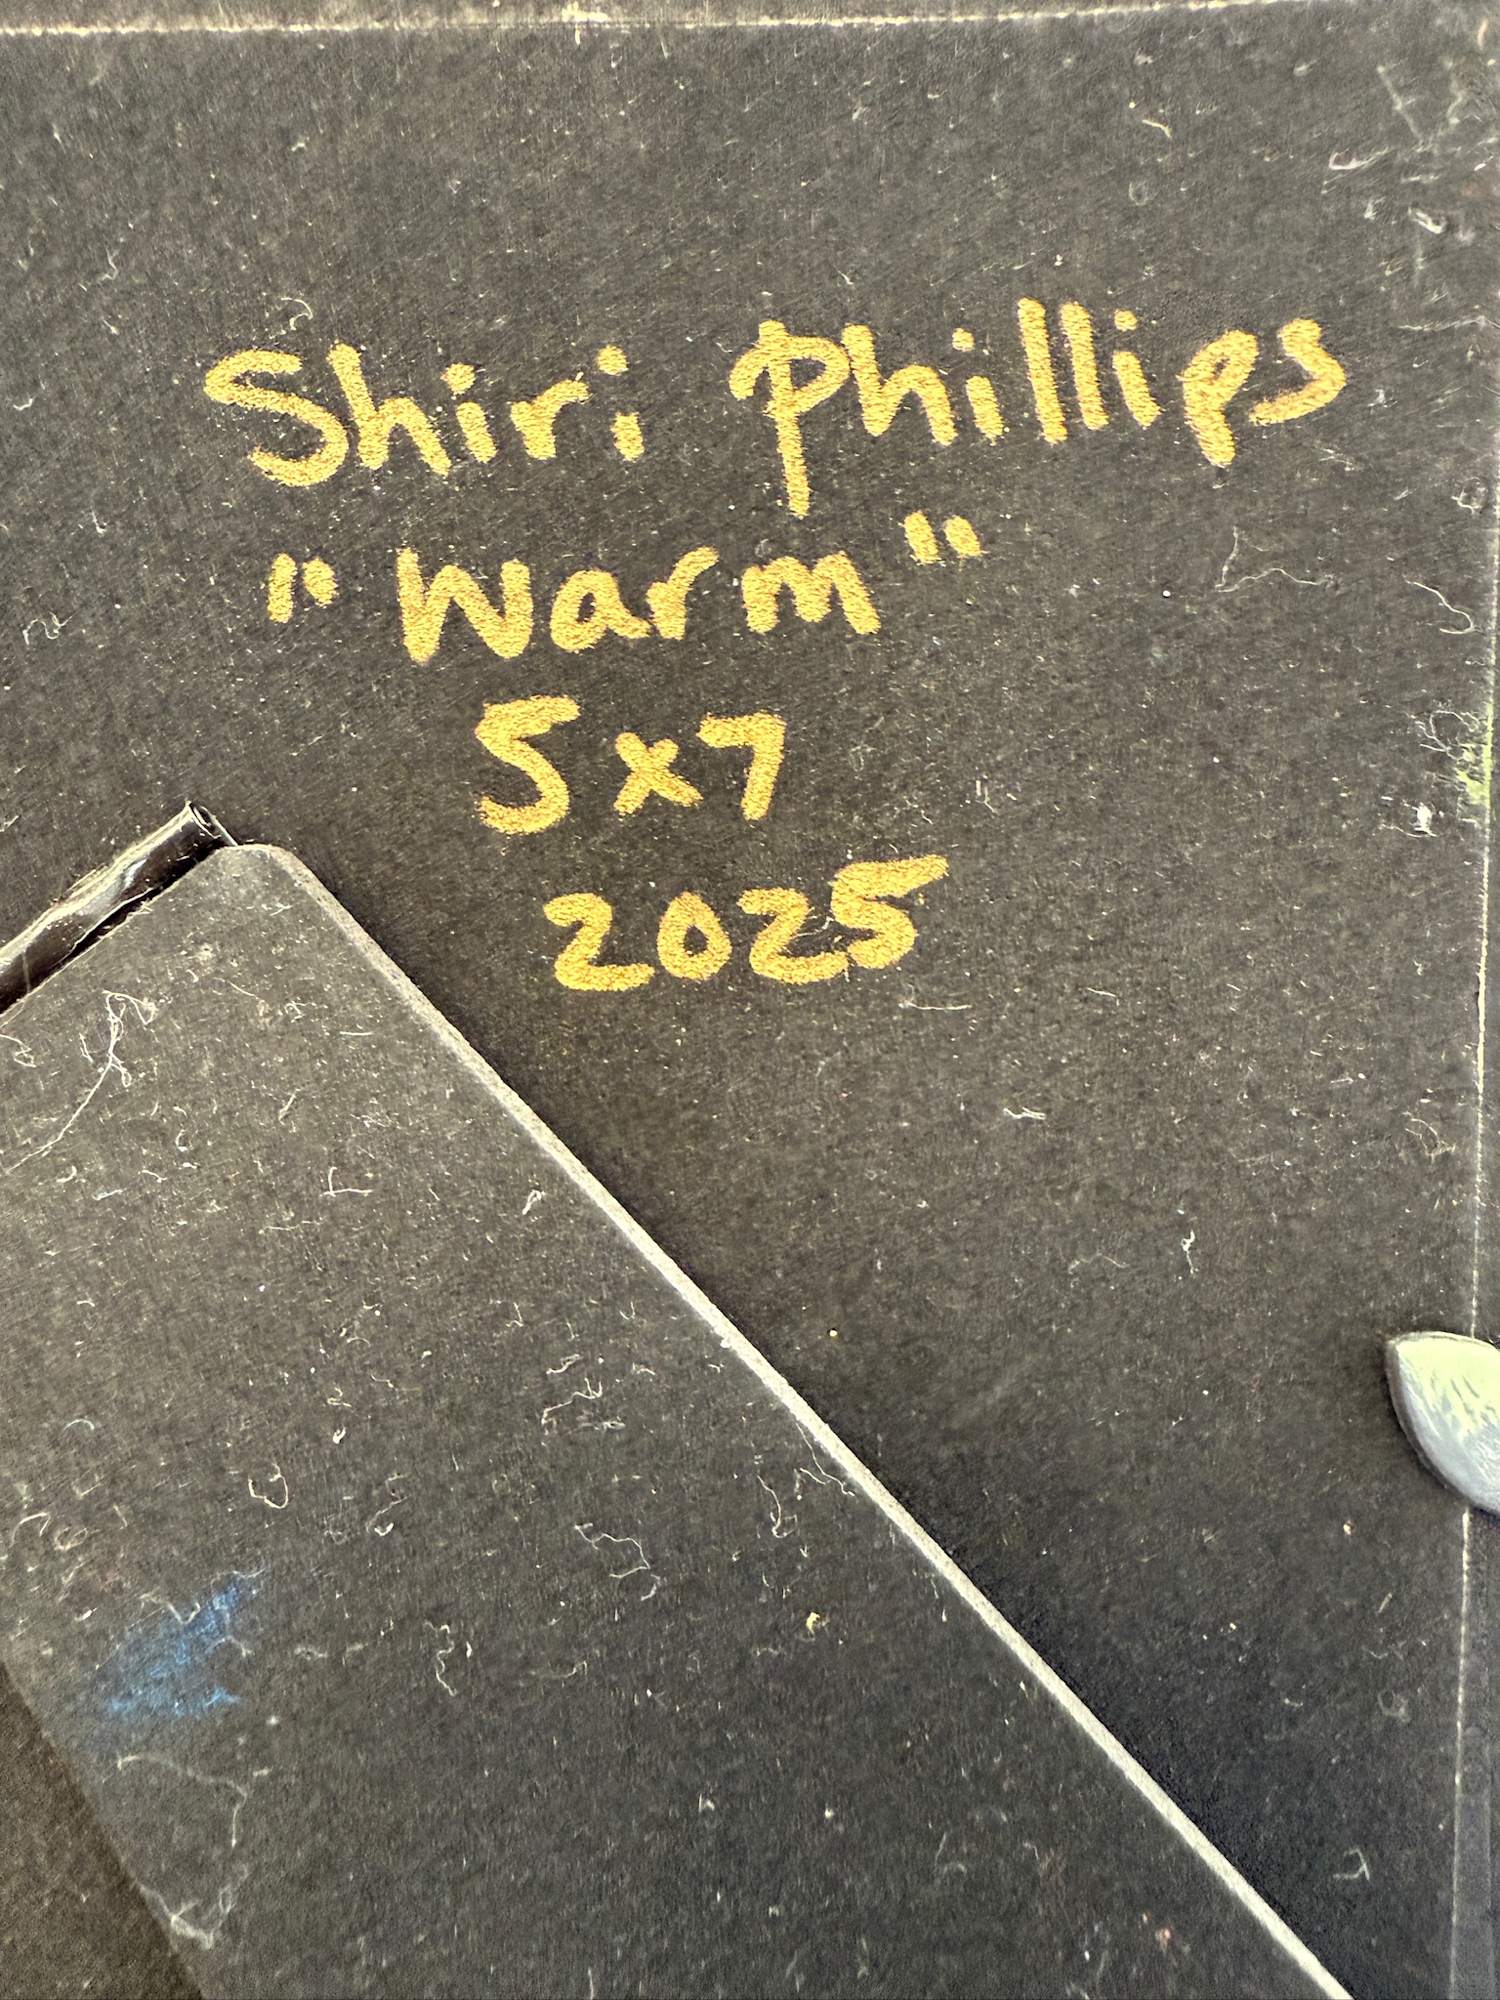 Shiri Phillips
"Warm"
5x7
2025